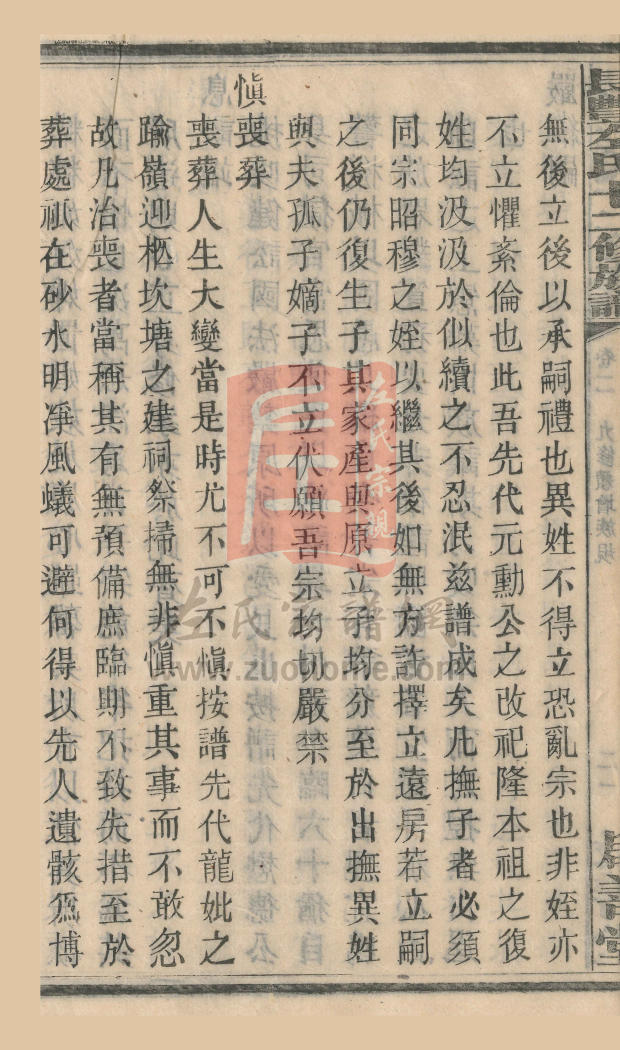 長豐左氏十二修族譜
卷二 九修續增族規
無後立後以承嗣禮也異姓不得立恐亂宗也非姪亦
不立懼紊倫也此吾先代元勳公之改祀隆本祖之復
姓均汲汲於似續之不忍泯茲譜成矣凡撫子者必須
同宗昭穆之姪以繼其後如無方許擇立遠房若立嗣
之後仍復生子其家產與原立子均分至於出撫異姓
與夫孤子嫡子不立伏願吾宗均切嚴禁
慎喪葬
喪葬人生大變當是時尤不可不慎按譜先代龍妣之
踰嶺迎柩坎塘之建祠祭掃無非慎重其事而不敢忽
故凡治喪者當稱其有無預備庶臨期不致失措至於
葬處祇在砂水明凈風蟻可避何得以先人遺骸爲博
左氏宗親
左氏宗譜網
www.zuohome.com